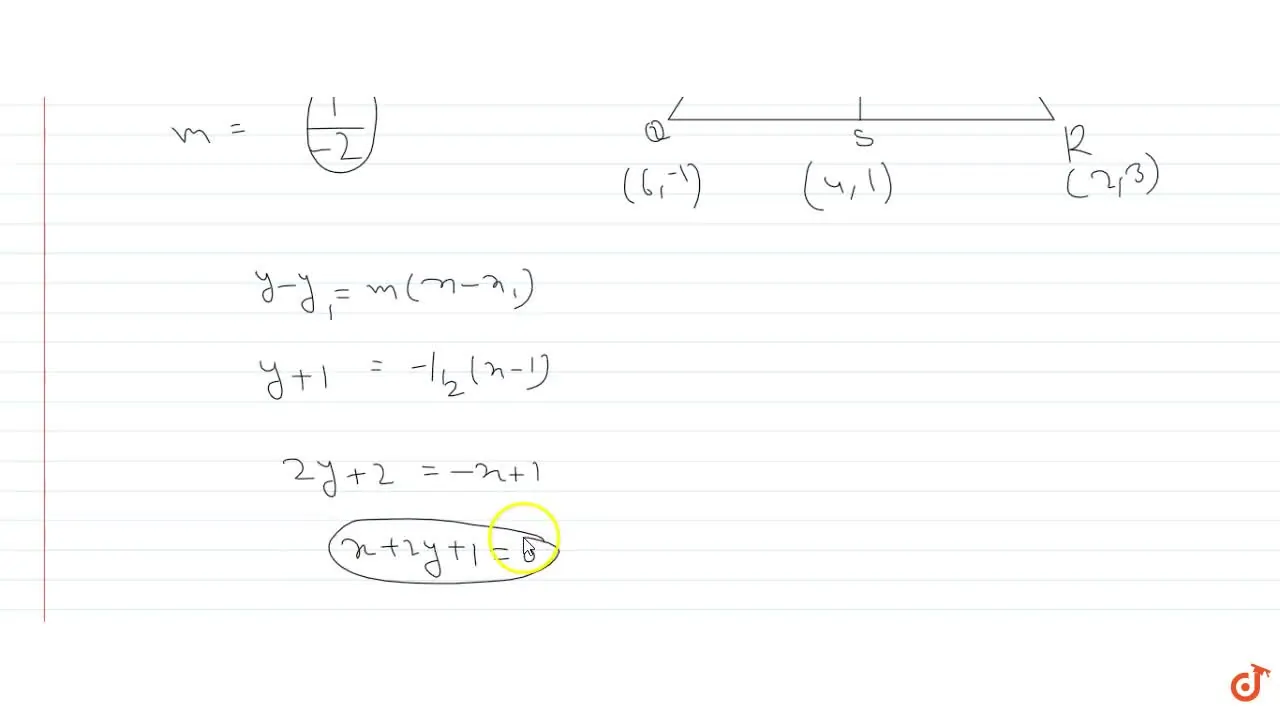 m = 1/-2
Q S R
(6,-1) (4,1) (2,3)
y-y₁ = m(x-x₁)
y+1 = -1/2(x-1)
2y+2 = -x+1
x+2y+1=0